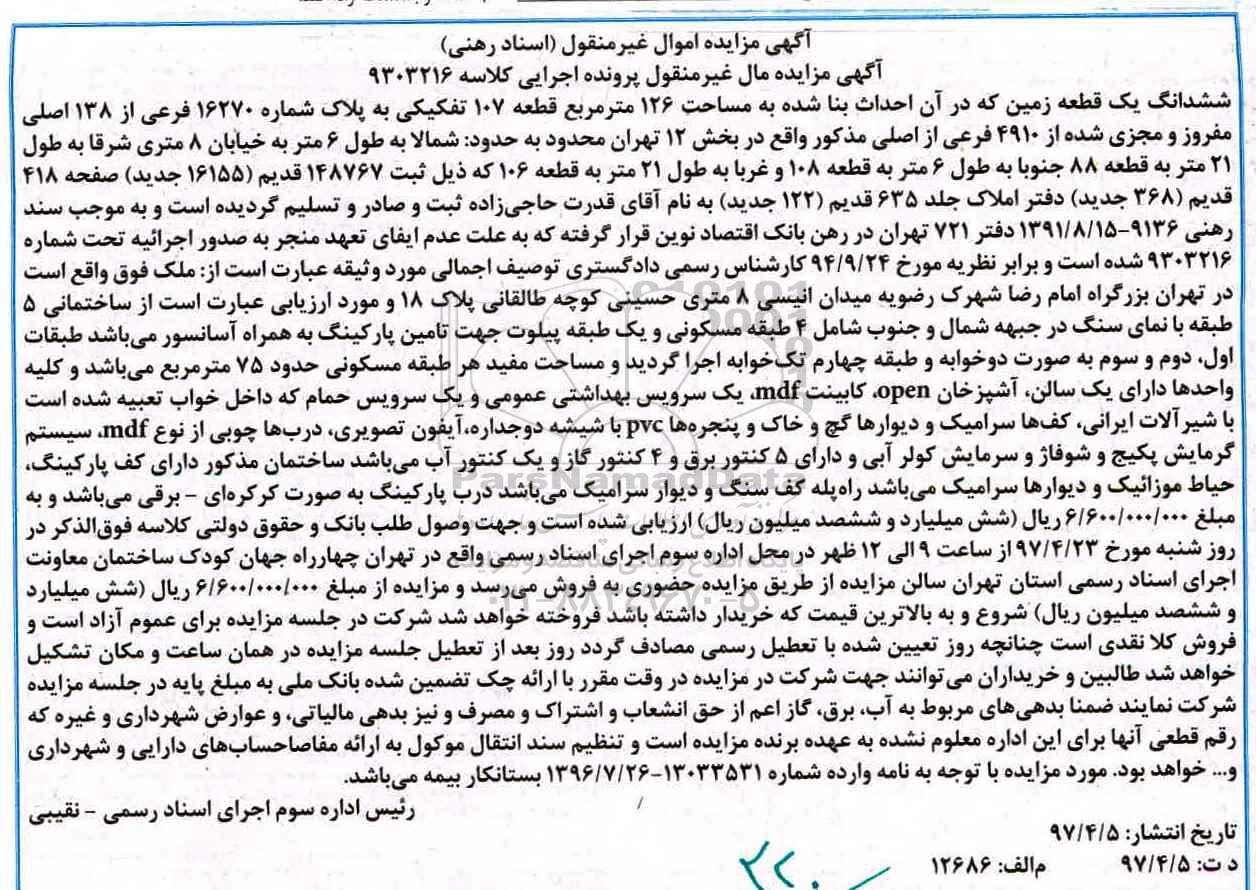 آگهی مزایده اموال غیرمنقول (اسناد رهنی)
آگهی مزایده مال غیرمنقول پرونده اجرایی کلاسه ۹۳۰۳۲۱۶
ششدانگ یک قطعه زمین که در آن احداث بنا شده به مساحت ۱۲۶ مترمربع قطعه ۱۰۷ تفکیکی به پلاک شماره ۱۶۲۷۰ فرعی از ۱۳۸ اصلی
مفروز و مجزی شده از ۴۹۱۰ فرعی از اصلی مذکور واقع در بخش ۱۲ تهران محدود به حدود: شمالا به طول ۶ متر به خیابان ۸ متری شرقا به طول
۲۱ متر به قطعه ۸۸ جنوبا به طول ۶ متر به قطعه ۱۰۸ و غربا به طول ۲۱ متر به قطعه ۱۰۶ که ذیل ثبت ۱۴۸۷۶۷ قدیم (۱۶۱۵۵ جدید) صفحه ۴۱۸
قدیم (۳۶۸ جدید) دفتر املاک جلد ۶۳۵ قدیم (۱۲۲ جدید) به نام آقای قدرت حاجی‌زاده ثبت و صادر و تسلیم گردیده است و به موجب سند
رهنی ۹۱۳۶-۱۳۹۱/۸/۱۵ دفتر ۷۲۱ تهران در رهن بانک اقتصاد نوین قرار گرفته که به علت عدم ایفای تعهد منجر به صدور اجرائیه تحت شماره
۹۳۰۳۲۱۶ شده است و برابر نظریه مورخ ۹۴/۹/۲۴ کارشناس رسمی دادگستری توصیف اجمالی مورد وثیقه عبارت است از: ملک فوق واقع است
در تهران بزرگراه امام رضا شهرک رضویه میدان انیسی ۸ متری حسینی کوچه طالقانی پلاک ۱۸ و مورد ارزیابی عبارت است از ساختمانی ۵
طبقه با نمای سنگ در جبهه شمال و جنوب شامل ۴ طبقه مسکونی و یک طبقه پیلوت جهت تامین پارکینگ به همراه آسانسور می‌باشد طبقات
اول، دوم و سوم به صورت دوخوابه و طبقه چهارم تک‌خوابه اجرا گردید و مساحت مفید هر طبقه مسکونی حدود ۷۵ مترمربع می‌باشد و کلیه
واحدها دارای یک سالن، آشپزخان open، کابینت mdf، یک سرویس بهداشتی عمومی و یک سرویس حمام که داخل خواب تعبیه شده است
با شیرآلات ایرانی، کف‌ها سرامیک و دیوارها گچ و خاک و پنجره‌ها pvc با شیشه دوجداره،آیفون تصویری، درب‌ها چوبی از نوع mdf، سیستم
گرمایش پکیج و شوفاژ و سرمایش کولر آبی و دارای ۵ کنتور برق و ۴ کنتور گاز و یک کنتور آب می‌باشد ساختمان مذکور دارای کف پارکینگ،
حیاط موزائیک و دیوارها سرامیک می‌باشد راه‌پله کف سنگ و دیوار سرامیک می‌باشد درب پارکینگ به صورت کرکره‌ای - برقی می‌باشد و به
مبلغ ۶/۶۰۰/۰۰۰/۰۰۰ ریال (شش میلیارد و ششصد میلیون ریال) ارزیابی شده است و جهت وصول طلب بانک و حقوق دولتی کلاسه فوق‌الذکر در
روز شنبه مورخ ۹۷/۴/۲۳ از ساعت ۹ الی ۱۲ ظهر در محل اداره سوم اجرای اسناد رسمی واقع در تهران چهارراه جهان کودک ساختمان معاونت
اجرای اسناد رسمی استان تهران سالن مزایده از طریق مزایده حضوری به فروش می‌رسد و مزایده از مبلغ ۶/۶۰۰/۰۰۰/۰۰۰ ریال (شش میلیارد
و ششصد میلیون ریال) شروع و به بالاترین قیمت که خریدار داشته باشد فروخته خواهد شد شرکت در جلسه مزایده برای عموم آزاد است و
فروش کلا نقدی است چنانچه روز تعیین شده با تعطیل رسمی مصادف گردد روز بعد از تعطیل جلسه مزایده در همان ساعت و مکان تشکیل
خواهد شد طالبین و خریداران می‌توانند جهت شرکت در مزایده در وقت مقرر با ارائه چک تضمین شده بانک ملی به مبلغ پایه در جلسه مزایده
شرکت نمایند ضمنا بدهی‌های مربوط به آب، برق، گاز اعم از حق انشعاب و اشتراک و مصرف و نیز بدهی مالیاتی، و عوارض شهرداری و غیره که
رقم قطعی آنها برای این اداره معلوم نشده به عهده برنده مزایده است و تنظیم سند انتقال موکول به ارائه مفاصاحساب‌های دارایی و شهرداری
و... خواهد بود. مورد مزایده با توجه به نامه وارده شماره ۱۳۰۳۳۵۳۱-۱۳۹۶/۷/۲۶ بستانکار بیمه می‌باشد.
رئیس اداره سوم اجرای اسناد رسمی - نقیبی
تاریخ انتشار: ۹۷/۴/۵
د ت: ۹۷/۴/۵ م‌الف: ۱۲۶۸۶
ParsNamadData